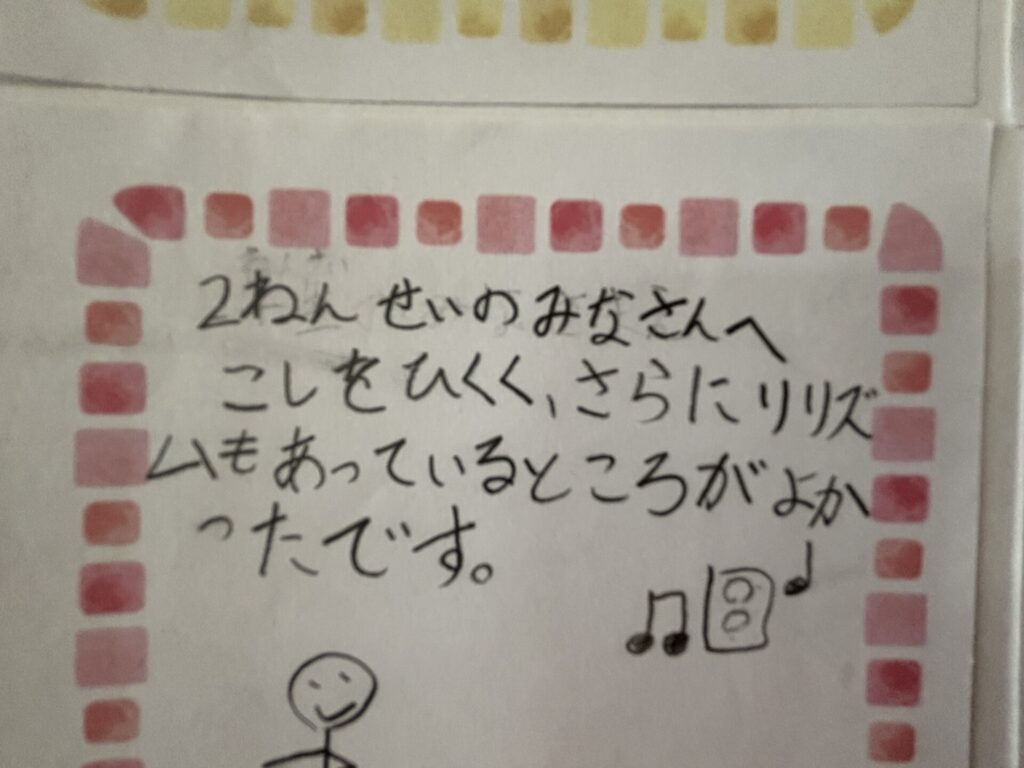 2ねんせいのみなさんへ
こしをひくく、さらにリリズ
ムもあっているところがよか
ったです。